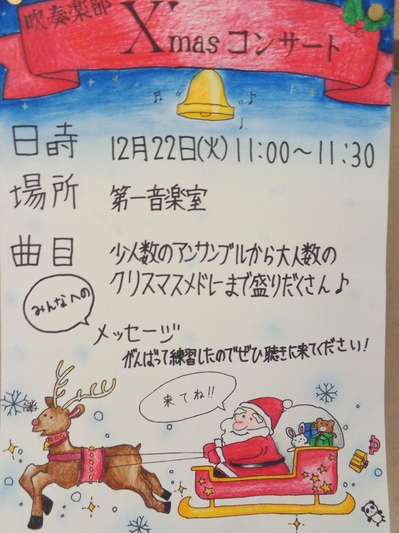 吹奏楽部
X'masコンサート
日時 12月22日(火)11:00～11:30
場所 第一音楽室
曲目 少人数のアンサンブルから大人数の
クリスマスメドレーまで盛りだくさん♪
みんなへの
メッセージ
がんばって練習したのでぜひ聴きに来てください!
来てね!!